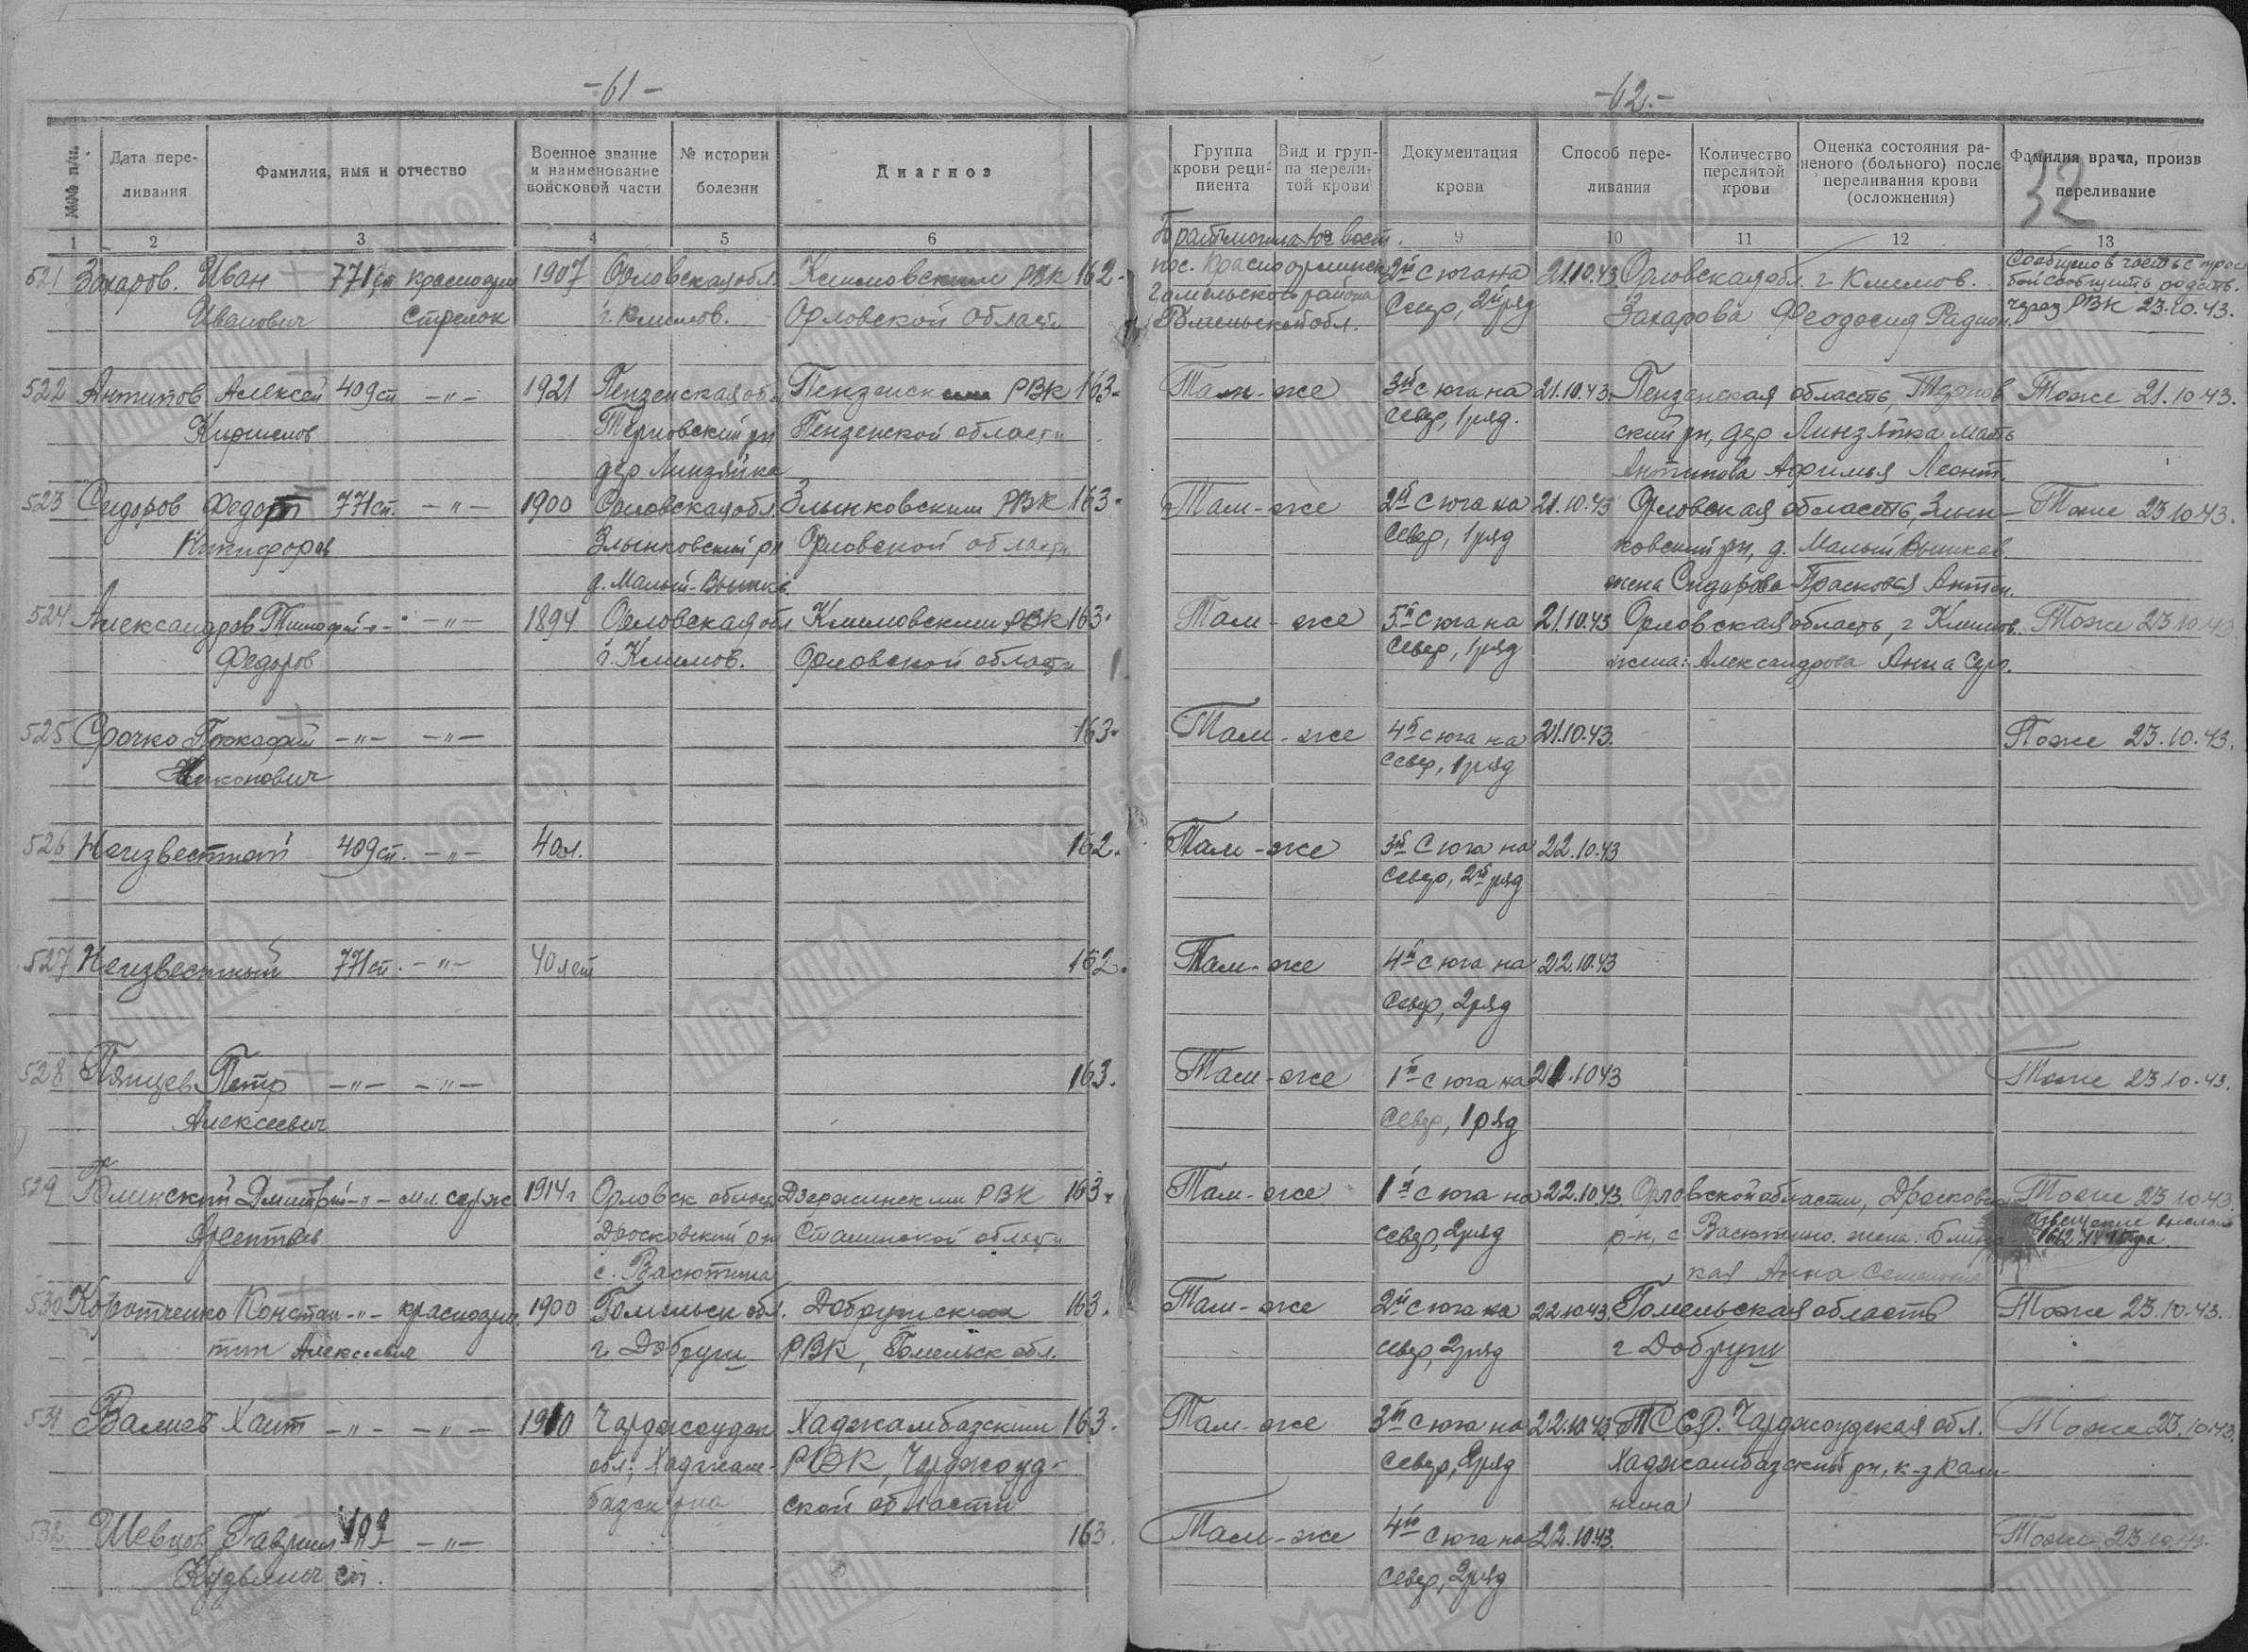 -61-
№№ п/п.
Дата пере-
ливания
Фамилия, имя и отчество
Военное звание
и наименование
войсковой части
№ истории
болезни
Диагноз
1 2 3 4 5 6
521 Захаров. Иван 771 сп красноарм 1907 Орловская обл. Климовским РВК 162-
Иванович стрелок г. Климов. Орловской области
522 Антипов Алексей 409 сп -"- 1921 Пензенская об. Пензенским РВК 163-
Кирилов Терновский рн Пензенской области
дер Линзяйка
523 Сидоров Федот 771 сп. -"- 1900 Орловская обл. Злынковским РВК 163-
Никифоров Злынковский рн Орловской области
д. Малый-Вышков
524 Александров Тимофей -"- -"- 1894 Орловская обл Климовским РВК 163-
Федоров г. Климов. Орловской области
525 Срочко Прокофий -"- -"- 163-
Никонович
526 Неизвестный 409 сп. -"- 40 л. 162.
527 Неизвестный 771 сп. -"- 40 лет 162.
528 Петр -"- -"- 163.
Алексеевич
529 Дмитрий -"- мл. серж 1914 г Орловск область Дзержинским РВК 163-
Дросковский рн Сталинской области
с. Васютина
530 Коротченко Констан -"- красноарм. 1900 Гомельск обл. Добрушским 163.
тин Алексеевич г. Добруш РВК, Гомельск обл.
531 Валиев Хаит -"- -"- 1910 Чарджоудск Хаджамбазским 163.
обл; Хаджам- РВК, Чарджоуд-
базск рна ской области
532 Шевцов Гаврил 409 -"- 163.
Кузьмич сп.
-62.-
Группа
крови реци-
пиента
Вид и груп-
па перели-
той крови
Документация
крови
Способ пере-
ливания
Количество
перелитой
крови
Оценка состояния ра-
неного (больного) после
переливания крови
(осложнения)
Фамилия врача, произв
переливание
32
9 10 11 12 13
Братмогила юго вост.
пос. Красноармейск 2й с юга на 21.10.43 Орловская обл. г Климов. Сообщено в часть с прось
Гомельского района Север, 2й ряд Захарова Феодосия Радион. бой сообщить родств.
Гомельской обл. через РВК 23.10.43.
Там-же 3й с юга на 21.10.43. Пензенская область, Тернов Тоже 21.10.43.
север, 1 ряд. ский рн, дер Линзяйка мать
Антипова Афимья Леонт.
Там-же 2й с юга на 21.10.43 Орловская область, Злын- Тоже 23.10.43.
север, 1 ряд ковский рн, д. Малый Вышков
жена Сидорова Прасковья Антон.
Там-же 5й с юга на 21.10.43 Орловская область, г Климов. Тоже 23.10.43
север, 1 ряд жена: Александрова Анна Серг.
Там-же 4й с юга на 21.10.43. Тоже 23.10.43.
север, 1 ряд
Там-же 3й с юга на 22.10.43
север, 2й ряд
Там-же 4й с юга на 22.10.43
север, 2 ряд
Там-же 1й с юга на 21.10.43 Тоже 23.10.43.
север, 1 ряд
Там-же 1й с юга на 22.10.43. Орловской области, Дросковск Тоже 23.10.43.
север, 2 ряд р-н, с Васютино. жена: Извещение выслано
кая Анна
Там-же 2й с юга на 22.10.43. Гомельская область Тоже 23.10.43.
север, 2 ряд г. Добруш
Там-же 3й с юга на 22.10.43. ТССР. Чарджоудская обл. Тоже 23.10.43.
север, 2 ряд Хаджамбазский рн, к-з Кали-
нина
Там-же 4й с юга на 22.10.43. Тоже 23.10.43.
север, 2 ряд